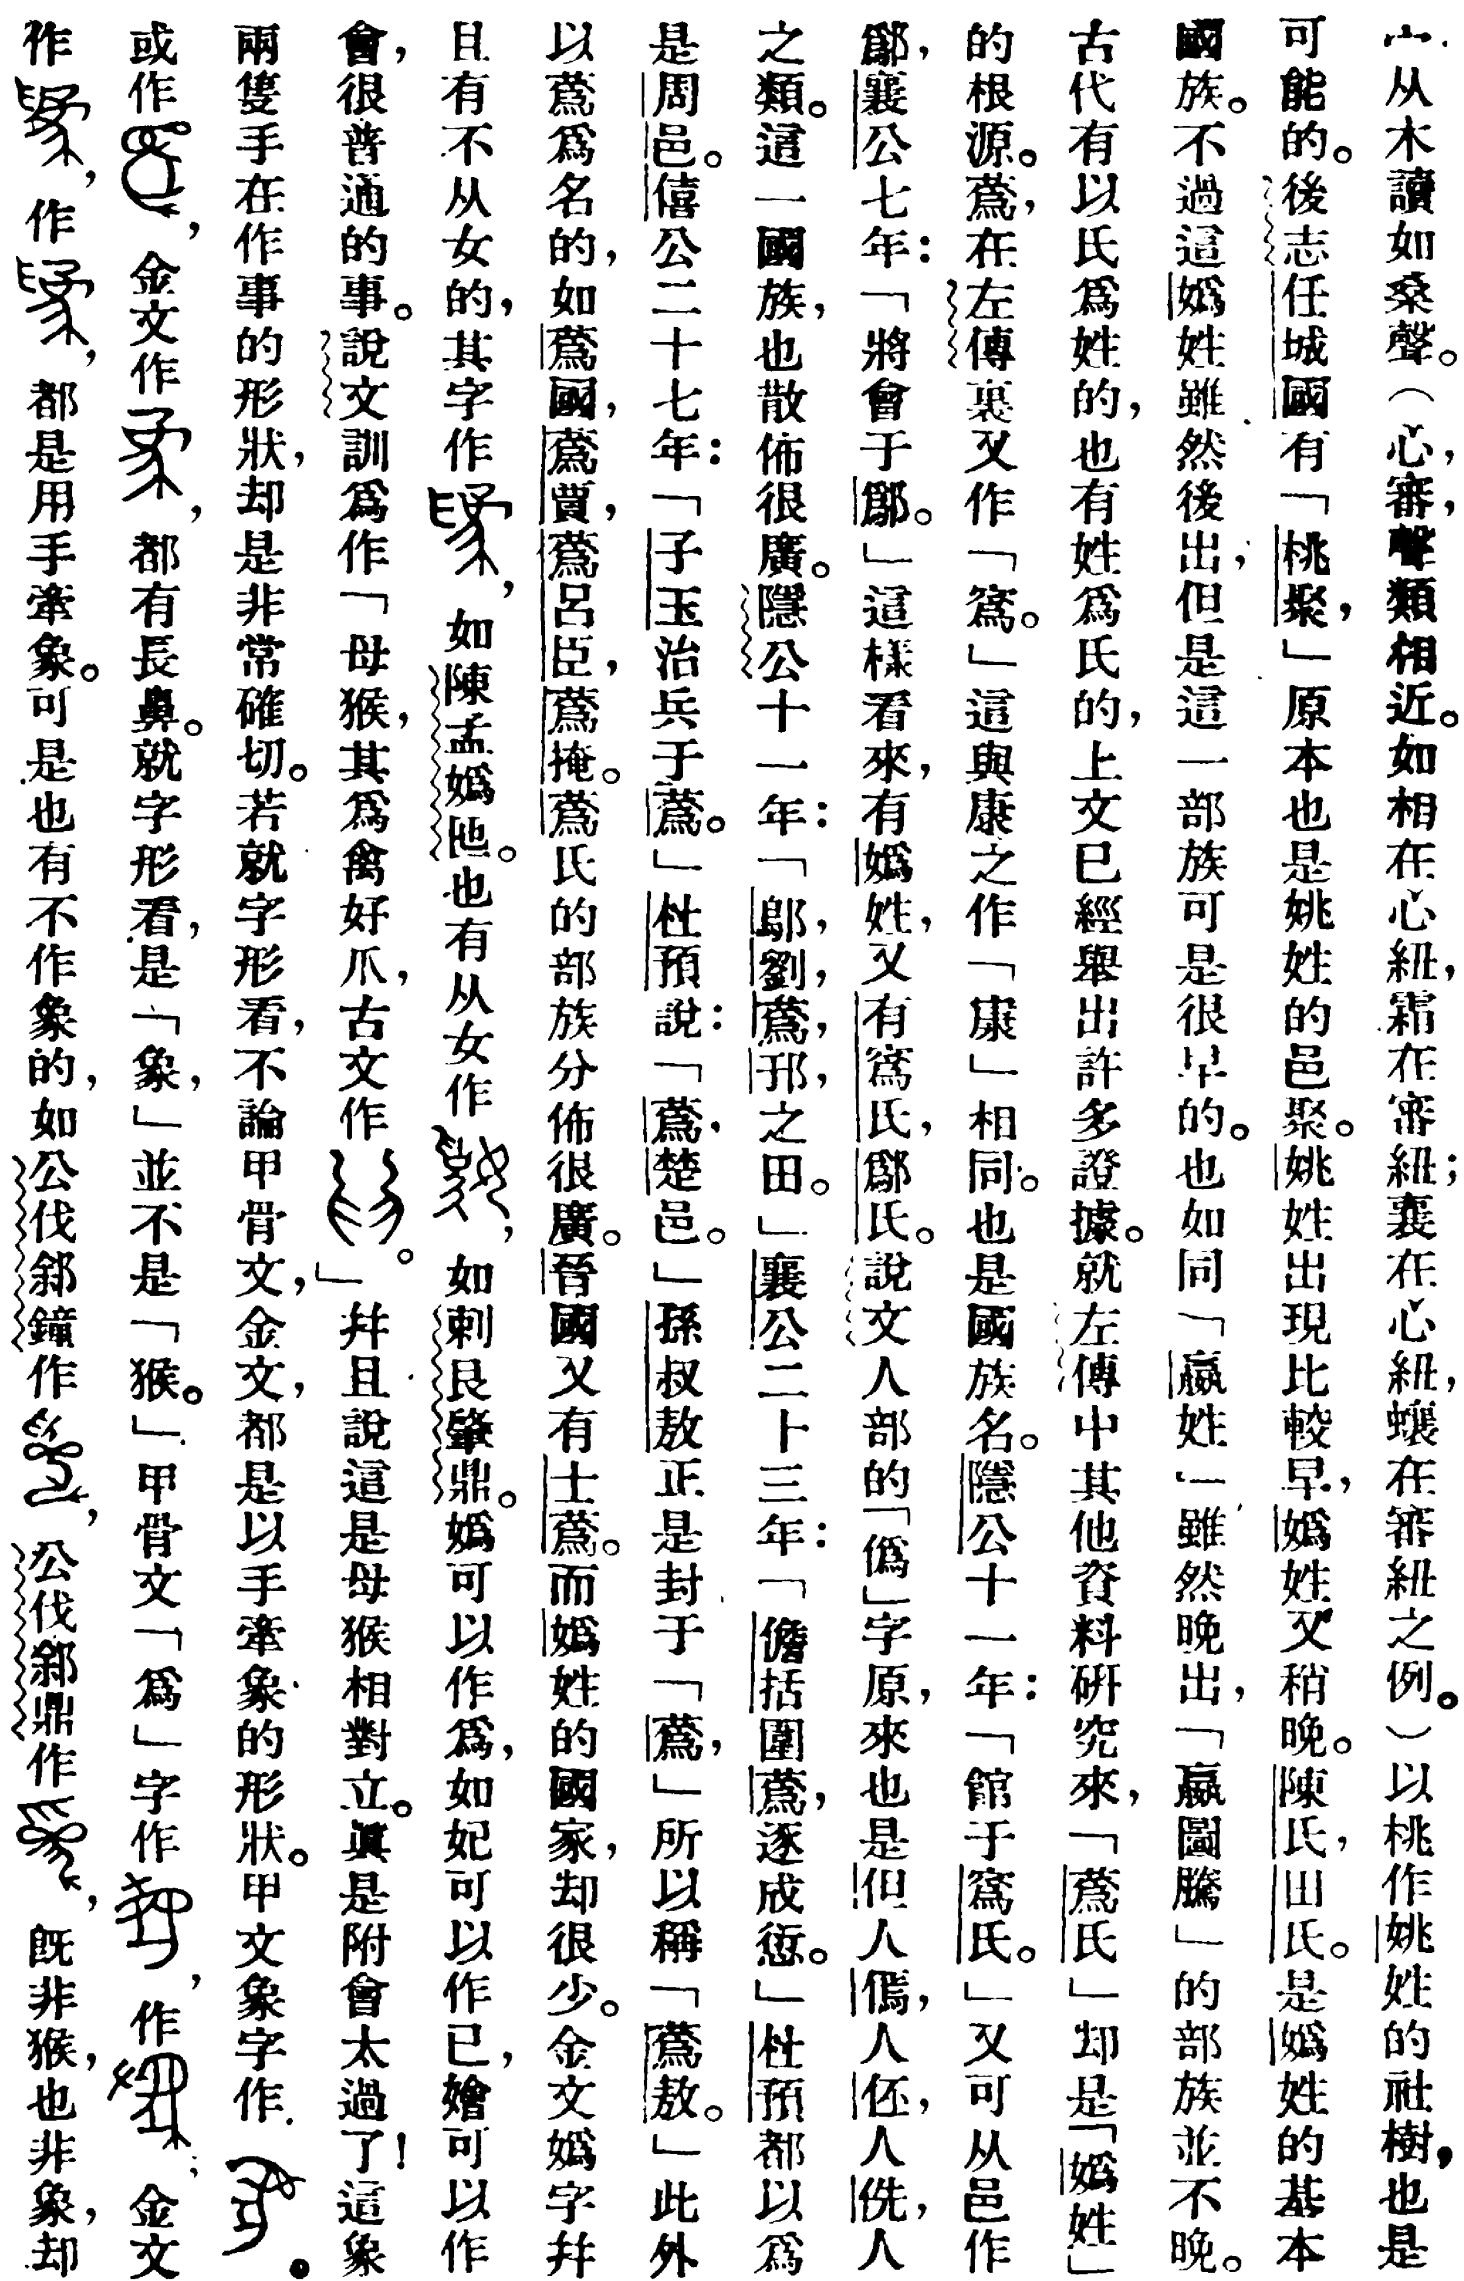 宀从木讀如桑聲。（心，審，聲類相近。如相在心紐，霜在審紐；襄在心紐，蠰在審紐之例。）以桃作姚姓的社樹，也是
可能的。後志任城國有「桃聚，」原本也是姚姓的邑聚。姚姓出現比較早，嬀姓又稍晚。陳氏，田氏。是嬀姓的基本
國族。不過這嬀姓雖然後出，但是這一部族可是很早的。也如同「嬴姓」雖然晚出，「嬴圖騰」的部族並不晚。
古代有以氏爲姓的，也有姓爲氏的，上文已經舉出許多證據。就左傳中其他資料研究來，「蔿氏」却是「嬀姓」
的根源。蔿，在左傳裏又作「寪。」這與康之作「康」相同。也是國族名。隱公十一年：「館于寪氏。」又可从邑作
鄬，襄公七年：「將會于鄬。」這樣看來，有嬀姓，又有寪氏，鄬氏。說文人部的「僞」字原，來也是但人僞，人伾，人侁，人
之類。這一國族，也散佈很廣。隱公十一年：「鄔，劉，蔿，邘，之田。」襄公二十三年：「儋括圍蔿，逐成愆。」杜預都以爲
是周邑。僖公二十七年：「子玉治兵于蔿。」杜預說：「蔿，楚邑。」孫叔敖正是封于「蔿，」所以稱「蔿敖。」此外
以蔿爲名的，如蔿國，蔿賈，蔿呂臣，蔿掩。蔿氏的部族分佈很廣。晉國又有士蔿。而嬀姓的國家，却很少。金文嬀字幷
且有不从女的，其字作，如陳孟嬀匜。也有从女作，如刺艮肇鼎。嬀可以作爲，如妃可以作已，嬒可以作
會，很普通的事。說文訓爲作「母猴，其爲禽好爪，古文作。」幷且說這是母猴相對立。眞是附會太過了！這象
兩隻手在作事的形狀，却是非常確切。若就字形看，不論甲骨文，金文，都是以手牽象的形狀。甲文象字作。
或作，金文作，都有長鼻。就字形看，是「象，」並不是「猴。」甲骨文「爲」字作，作；金文
作，作，都是用手牽象。可是也有不作象的，如公伐郤鐘作，公伐郤鼎作，旣非猴，也非象，却